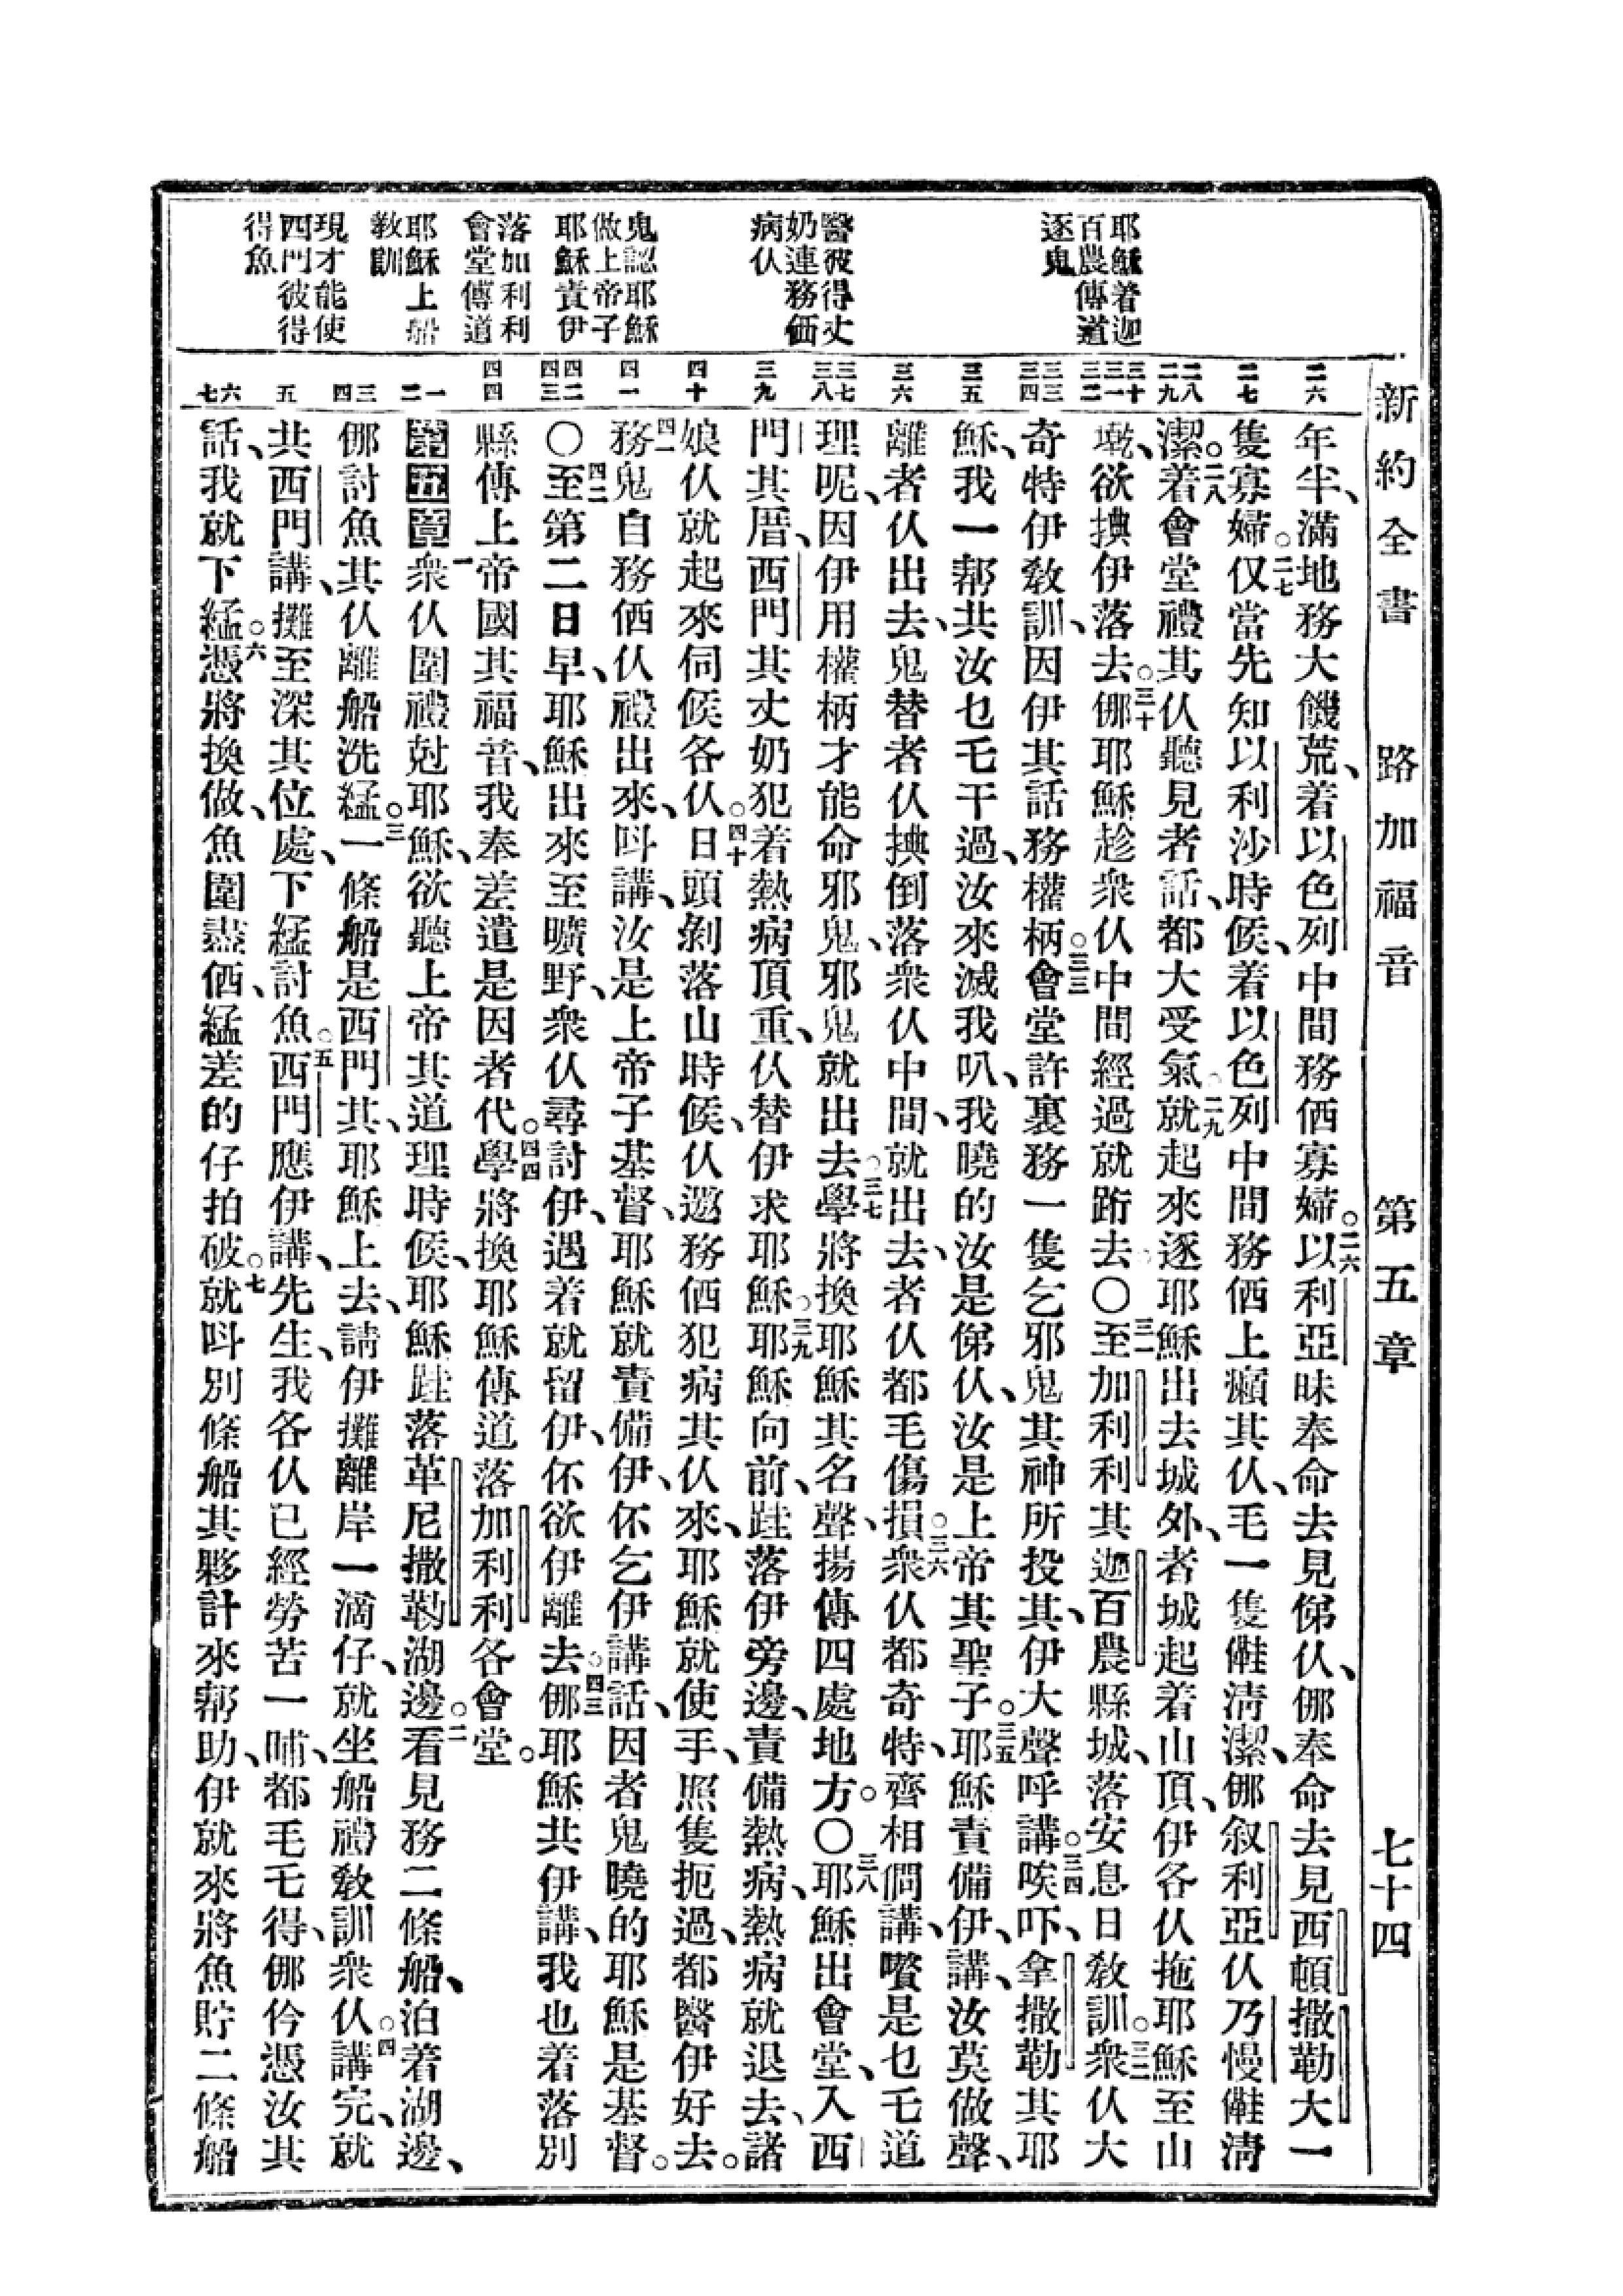 新約全書 路加福音 第五章 七十四
耶穌着迦
百農傳道
逐鬼
醫彼得丈
奶連務価
病仈
鬼認耶穌
做上帝子
耶穌責伊
落加利利
會堂傳道
耶穌上船
教訓
現才能使
西門彼得
得魚
二六
二七
二八
二九
三十
三一
三二
三三
三四
三五
三六
三七
三八
三九
四十
四一
四二
四三
四四
一
二
三
四
五
六
七
年半、滿地務大饑荒、着以色列中間務価寡婦。二六以利亞昧奉命去見俤仈、㑚奉命去見西頓撒勒大一
隻寡婦。二七仅當先知以利沙時候、着以色列中間務価上癩其仈、毛一隻𪨊淸潔、㑚叙利亞仈乃慢𪨊淸
潔。二八着會堂禮其仈聽見者話、都大受氣。二九就起來逐耶穌出去城外、者城起着山頂、伊各仈拖耶穌至山
墘、欲㨃伊落去。三十㑚耶穌趁衆仈中間經過就跨去。〇三一至加利利其迦百農縣城、落安息日教訓。三二衆仈大
奇特伊教訓、因伊其話務權柄。三三會堂許裏務一隻乞邪鬼其神所投其、伊大聲呼講。三四唉吓、拿撒勒其耶
穌、我一帮共汝乜毛干過、汝來滅我叭、我曉的汝是俤仈、汝是上帝其聖子。三五耶穌責備伊、講、汝莫做聲、
離者仈出去、鬼替者仈㨃倒落衆仈中間、就出去、者仈都毛傷損。三六衆仈都奇特、齊相問講、嚽是乜乇道
理呢、因伊用權柄才能命邪鬼、邪鬼就出去。三七學將換耶穌其名聲、揚傳四處地方。〇三八耶穌出會堂、入西
門其厝、西門其丈奶犯着熱病頂重、仈替伊求耶穌。三九耶穌向前、跬落伊旁邊、責備熱病、熱病就退去、諸
娘仈就起來伺候各仈。四十日頭剝落山時候、仈邀務価犯病其仈來、耶穌就使手、照隻扼過、都醫伊好去。
四一務鬼自務価仈禮出來、呌講、汝是上帝子基督、耶穌就責備伊、伓乞伊講話、因者鬼曉的耶穌是基督。
〇四二至第二日早、耶穌出來至曠野、衆仈尋討伊、遇着就留伊、伓欲伊離去。四三㑚耶穌共伊講、我也着落別
縣傳上帝國其福音、我奉差遣是因者代。四四學將換耶穌傳道落加利利各會堂。
第五章 一衆仈圍禮兙耶穌、欲聽上帝其道理時候、耶穌跬落革尼撒勒湖邊。二看見務二條船、泊着湖邊、
㑚討魚其仈離船洗綕。三一條船是西門其、耶穌上去、請伊攤離岸一滴仔、就坐船禮教訓衆仈。四講完、就
共西門講、攤至深其位處、下綕討魚。五西門應伊講、先生、我各仈已經勞苦一晡、都毛乇得、㑚仱憑汝其
話、我就下綕。六憑將換做、魚圍盡価、綕差的仔拍破。七就呌別條船其夥計來帮助、伊就來將魚貯二條船